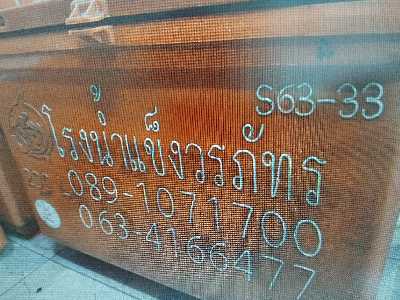 S63-33
โรงน้ำแข็งวรภัทร
089-1071700
063-4166477